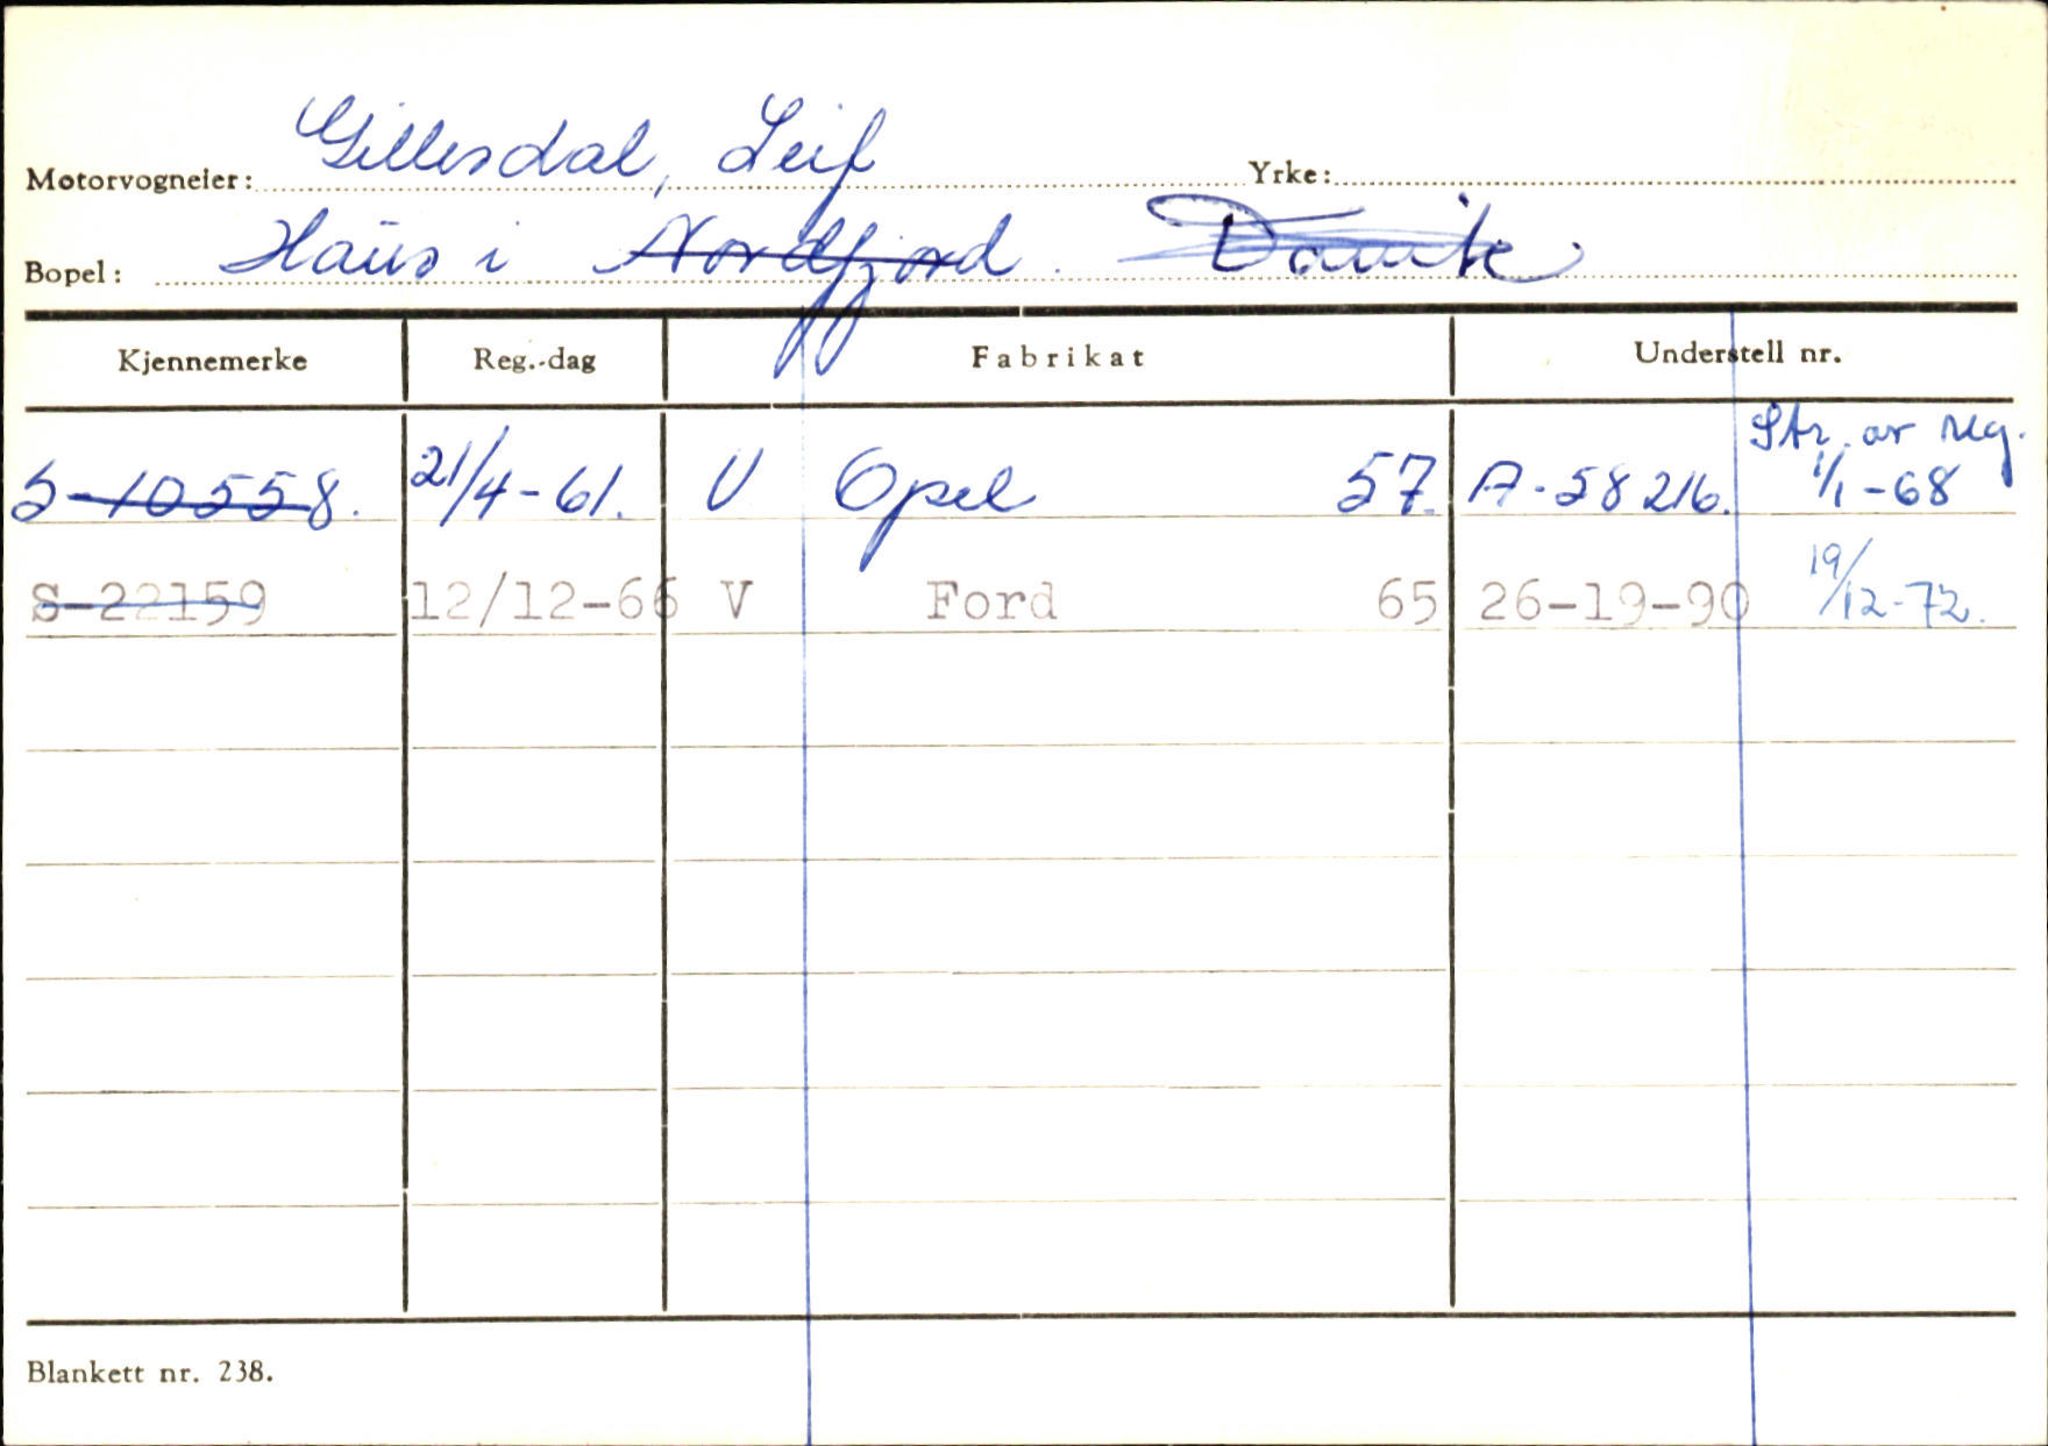 Motorvogneier: Gillesdal, Leif Yrke:
Bopel: Haus i Nordfjord.
Kjennemerke Reg.-dag Fabrikat Understell nr.
S-10558. 21/4-61. V Opel 57. A-58216. Str. av reg. 1/1-68
S-22159 12/12-66 V Ford 65 26-19-90 19/12-72.
Blankett nr. 238.